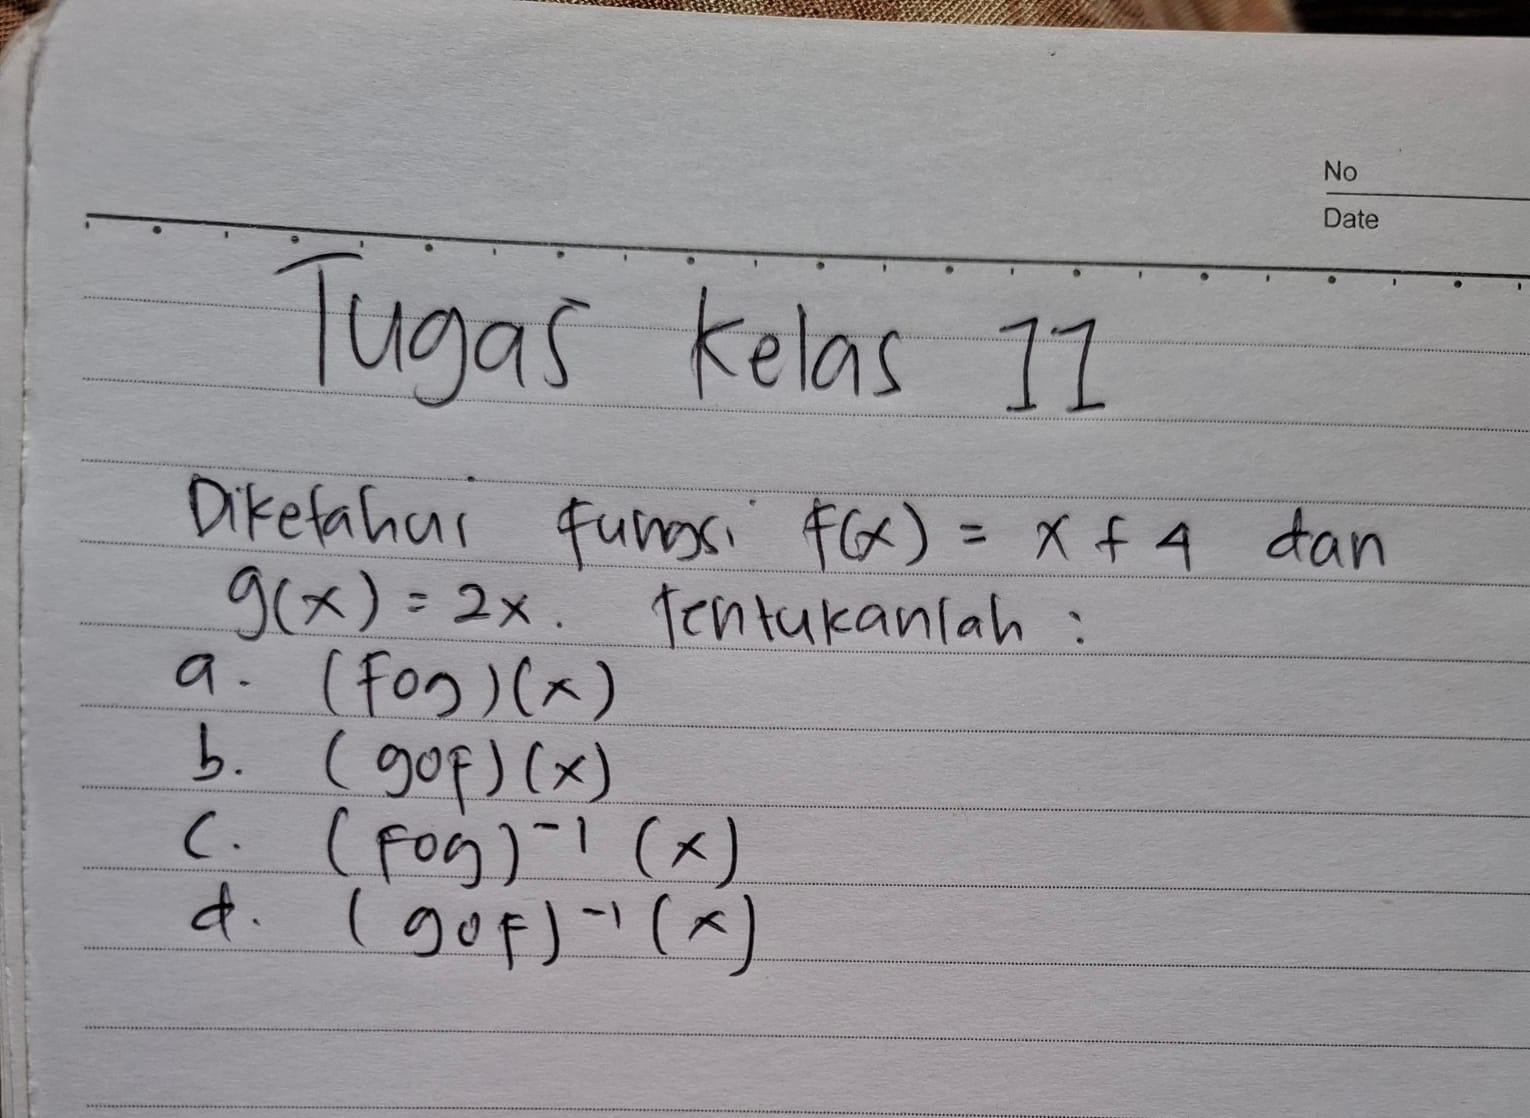 No
Date
Tugas Kelas 11
Diketahui fungsi f(x) = x + 4 dan
g(x) = 2x. Tentukanlah :
a. (fog)(x)
b. (gof)(x)
c. (fog)⁻¹ (x)
d. (gof)⁻¹ (x)